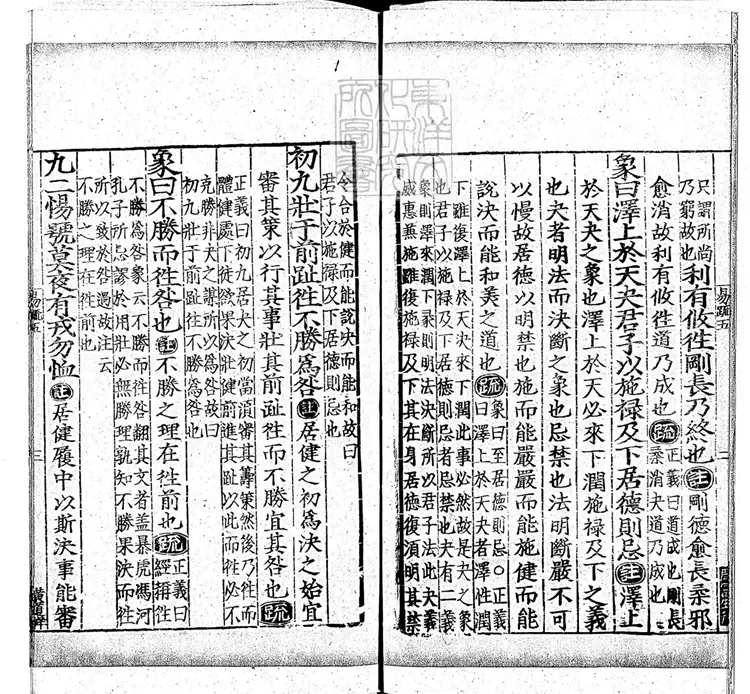 只謂所尚
乃窮故也利有攸徃剛長乃終也註剛德愈長柔邪
愈消故利有攸徃道乃成也疏正義曰道成也剛長
柔消夬道乃成也
象曰澤上於天夬君子以施禄及下居德則忌註澤上
於天夬之象也澤上於天必來下潤施禄及下之義
也夬者明法而決斷之象也忌禁也法明斷嚴不可
以慢故居德以明禁也施而能嚴嚴而能施健而能
說決而能和美之道也疏象曰至居德則忌○正義
曰澤上於天夬者澤性潤
下雖復澤上於天決來下潤此事必然故是夬之象
也君子以施禄及下居德則忌者忌禁也夬有二義
象則澤來潤下彖則明法決斷所以君子法此夬義
威惠兼施雖復施禄及下其在身居德復須明其禁
令合於健而能說決而能和故曰
君子以施禄及下居德則忌也
初九壯于前趾徃不勝爲咎註居健之初爲決之始宜
審其策以行其事壯其前趾徃而不勝宜其咎也疏
正義曰初九居夬之初當須審其籌策然後乃徃而
體健處下徒欲果決壯健前進其趾以此而徃必不
克勝非夬之謀所以爲咎故曰
初九壯于前趾徃不勝爲咎也
象曰不勝而徃咎也註不勝之理在徃前也疏正義曰
經稱徃
不勝爲咎象云不勝而徃咎翻其文者蓋暴虎馮河
孔子所忌謬於用壯必無勝理孰知不勝果決而徃
所以致於咎過故注云
不勝之理在徃前也
九二惕號莫夜有戎勿恤註居健履中以斯決事能審
易疏五
二
易疏五
三